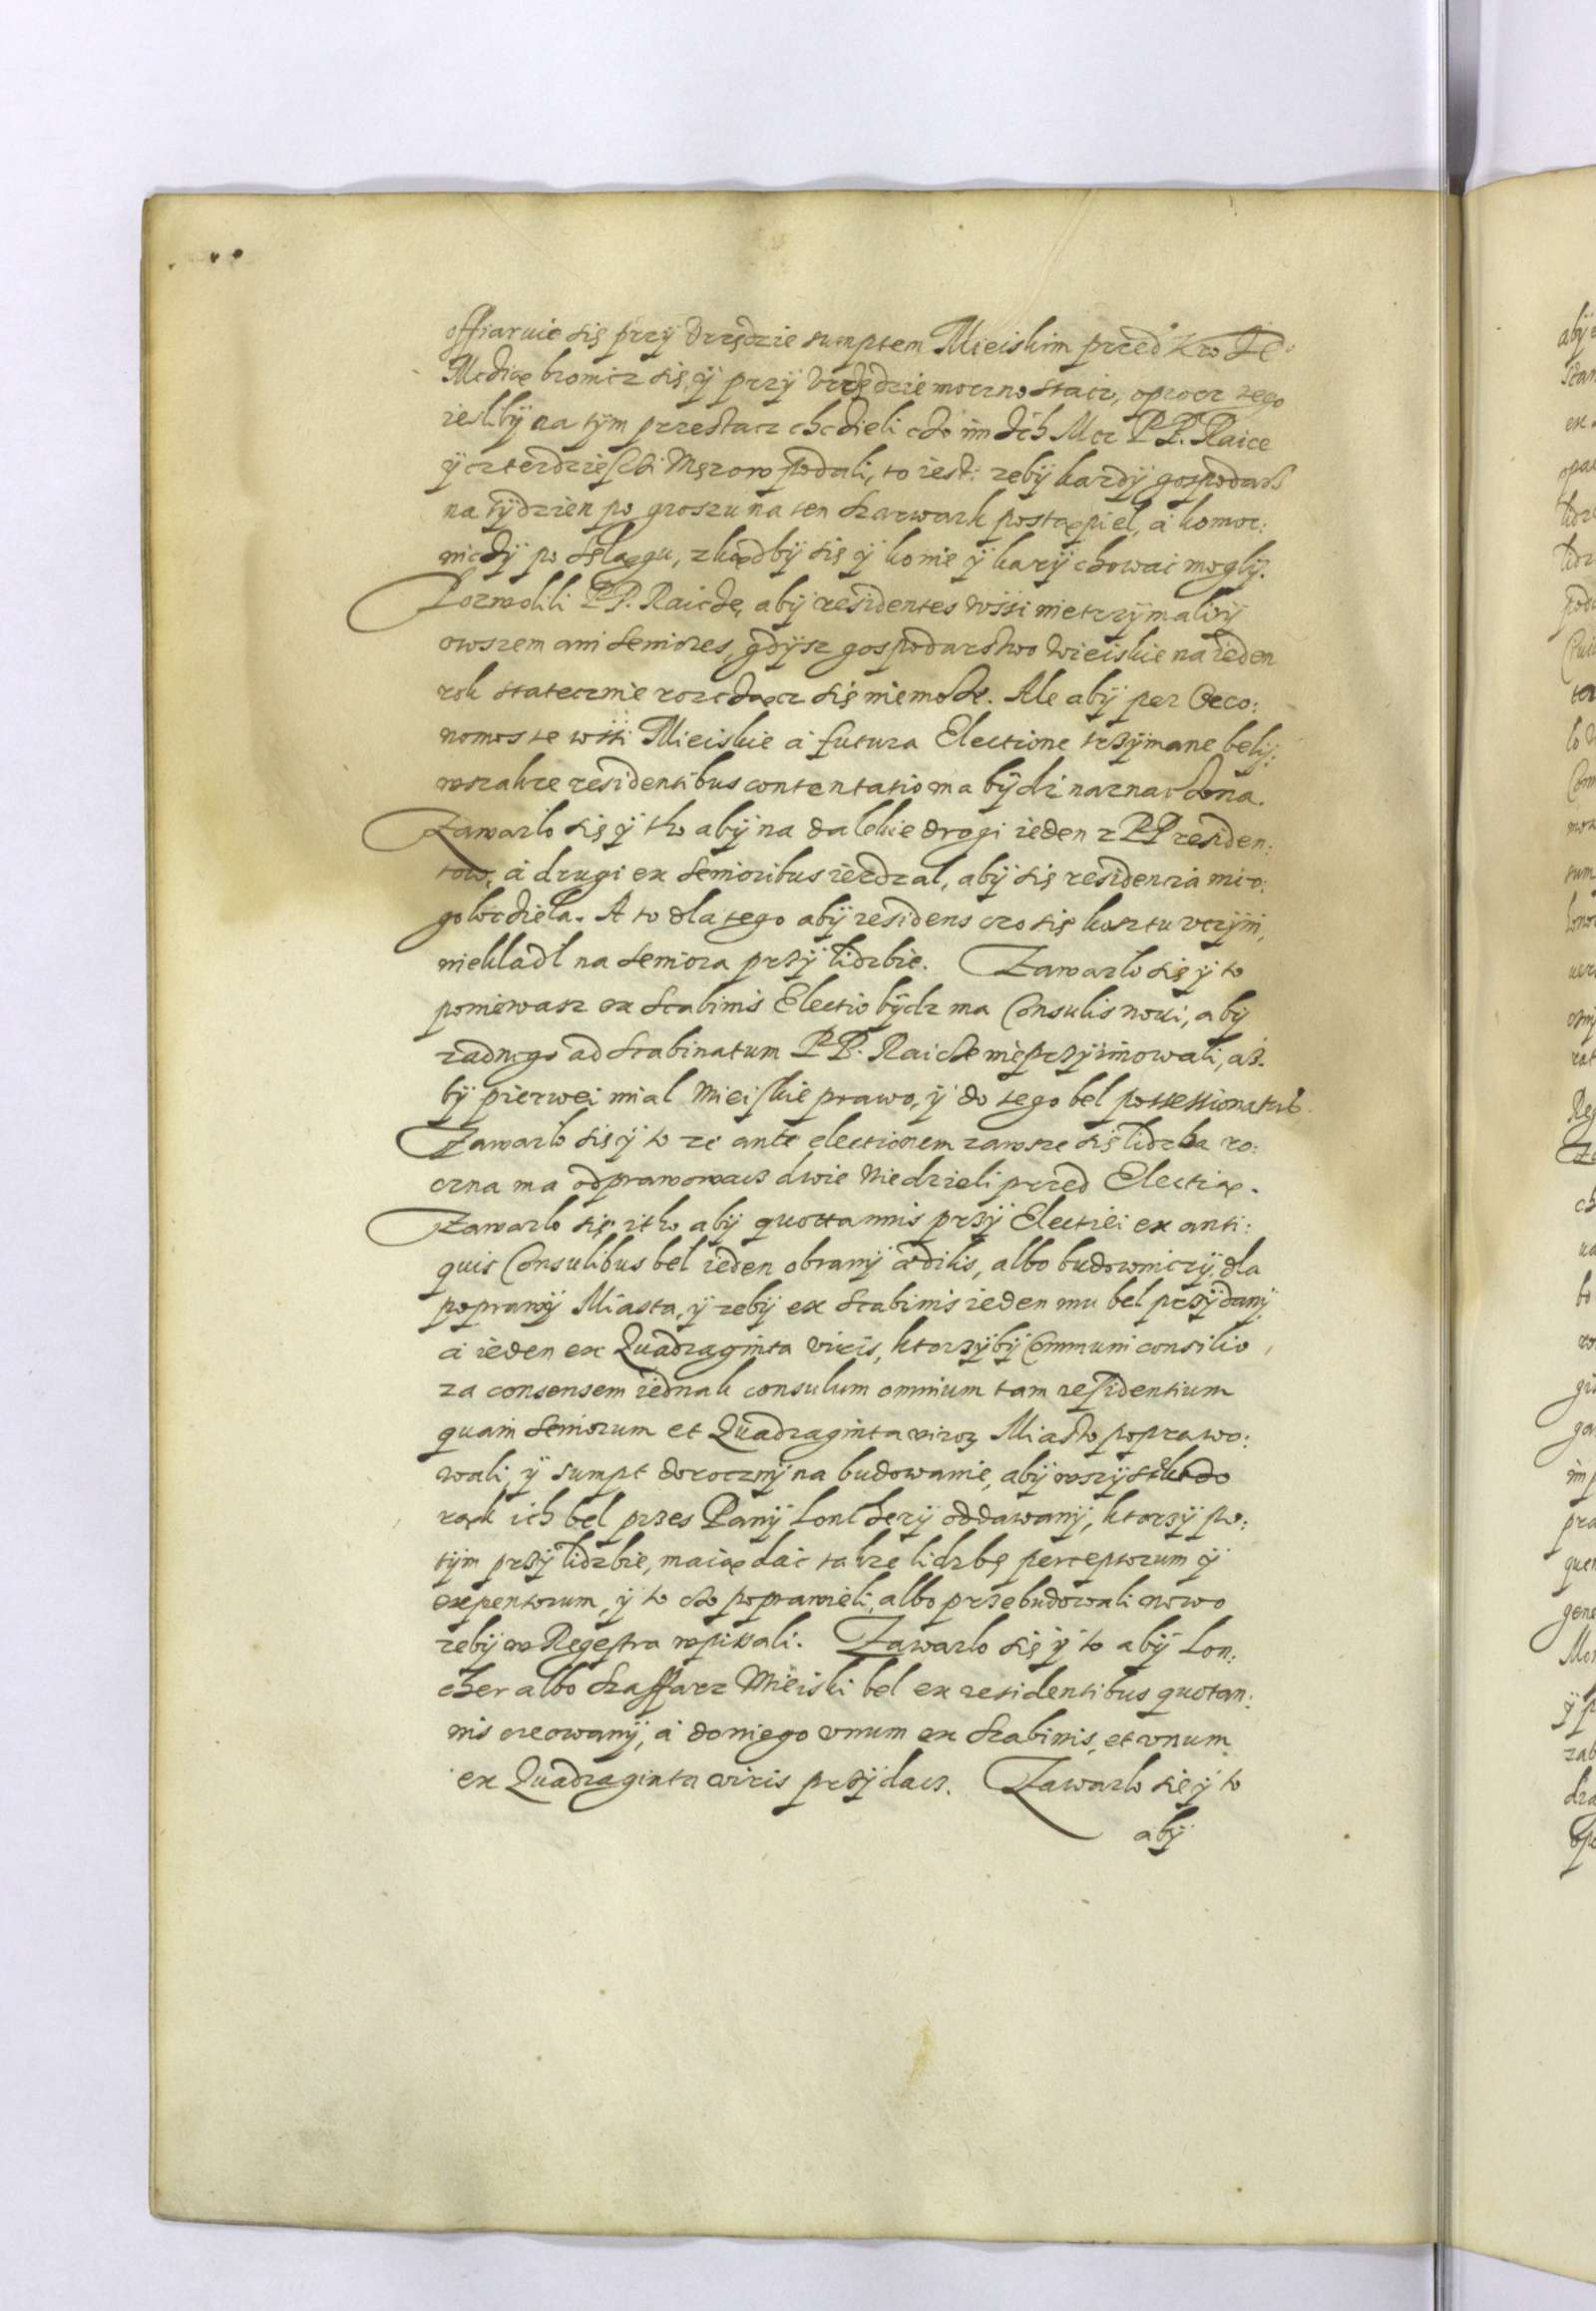 offiaruie się przÿ Vrzędzie sumptem Mieiskim przed Kro Je°
Mcdią bronicz się, ÿ przÿ Vrzędzie moczno staicz, oprocz tego
iesliby na tÿm przestacz chcdieli cdo im Jch Mcz P.P. Raice
ÿ czterdziesdci Męzow podali, to iest: zebÿ kazdÿ gospodarz
na tÿdzien po groszu na ten szarwark postąpiel, á komor:
nicdÿ po selągu, zkądbÿ się ÿ konie ÿ karÿ chowai moglÿ.
Pozwolili P.P. Raicde, abÿ residentes wssi nietrzÿmali ÿ
owszem ani seniores, gdÿsz gospodarstwo wieiskie na ieden
rok statecznie rozcdącz się niemodze. Ale abÿ per Oeco:
nomos te wssi Mieiskie á futura Electione trzÿmane belÿ:
wszakze residentibus contentatio ma bÿdz naznacdona.
Zawarlo się ÿ tho abÿ na dalekie drogi ieden z PP residen:
tow, á drugi ex senioribus iezdzal, abÿ się residenzia mio:
golocdiela. A to dla tego abÿ residens czo się kosztu vczÿni,
niekladl na seniora przÿ lidzbie. Zawarlo się ÿ to
poniewasz ex scabinis Electio bÿdz ma Consulis noui, abÿ
zadnego ad scabinatum P.P. Raicde nieprzÿimowali, asz
bÿ pierwei mial Mieiskie prawo, ÿ do tego bel possessionatus.
Zawarlo się ÿ to ze ante electionem zawsze się lidzba ro:
czna ma odprawowacz dwie Niedzieli przed Electią.
Zawarlo się itho abÿ quottannis przÿ Electiei ex anti:
quis Consulibus bel ieden obranÿ ædilis, albo budowniczÿ, dla
poprawÿ Miasta, ÿ zebÿ ex scabinis ieden mu bel przÿdanÿ
á ieden ex Quadraginta viris, ktorzÿbÿ Communi consilio,
za consensem iednak consulum omnium tam residentium
quam seniorum et Quadraginta viroꝝ Miasto poprawo:
wali, ÿ sumpt docznÿ na budowanie, abÿ wszÿstek do
rąk ich bel przes Panÿ Lonherÿ oddawanÿ, ktorzÿ po:
tÿm przÿ lidzbie, maią daic takze lidzbę perceptorum ÿ
expentorum, ÿ to cdo poprawieli, albo przebudowali nowo
zebÿ w Regestra wpissali. Zawarlo się ÿ to abÿ Lon:
cher albo szaffarz Mieiski bel ex residentibus quotan:
nis creowanÿ, á do niego vnum ex scabinis, et vnum
ex Quadraginta viris przÿdacz. Zawarlo się ÿ to
abÿ